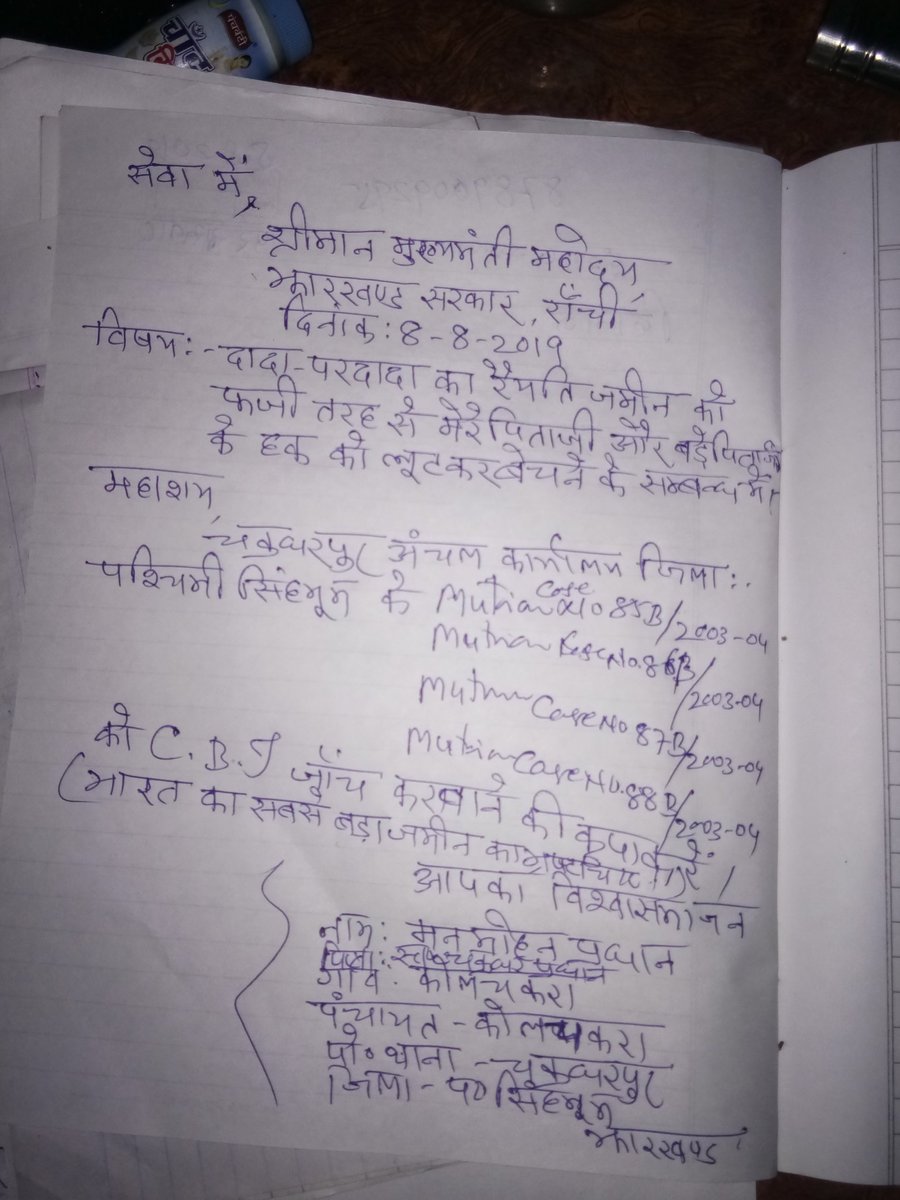 सेवा में,
श्रीमान मुख्यमंत्री महोदय,
झारखण्ड सरकार, राँची
दिनांक: 8-8-2019
विषय:- दादा-परदादा का रैयति जमीन को
फर्जी तरह से मेरे पिताजी और बड़े पिताजी
के हक को लूटकर बेचने के सम्बन्ध में।
महाशय,
चक्रधरपुर अंचल कार्यालय जिला:-
पश्चिमी सिंहभूम के Mutation Case No 85B/2003-04
Mutation Case No. 86B/2003-04
Mutation Case No 87B/2003-04
Mutation Case No. 88B/2003-04
को C.B.I जाँच करवाने की कृपा करें।
(भारत का सबसे बड़ा जमीन का
आपका विश्वासभाजन
नाम: मनमोहन प्रधान
पिता: प्रधान
गांव: कोलचकरा
पंचायत - कोलचकरा
पो० थाना - चक्रधरपुर
जिला - प० सिंहभूम
झारखण्ड